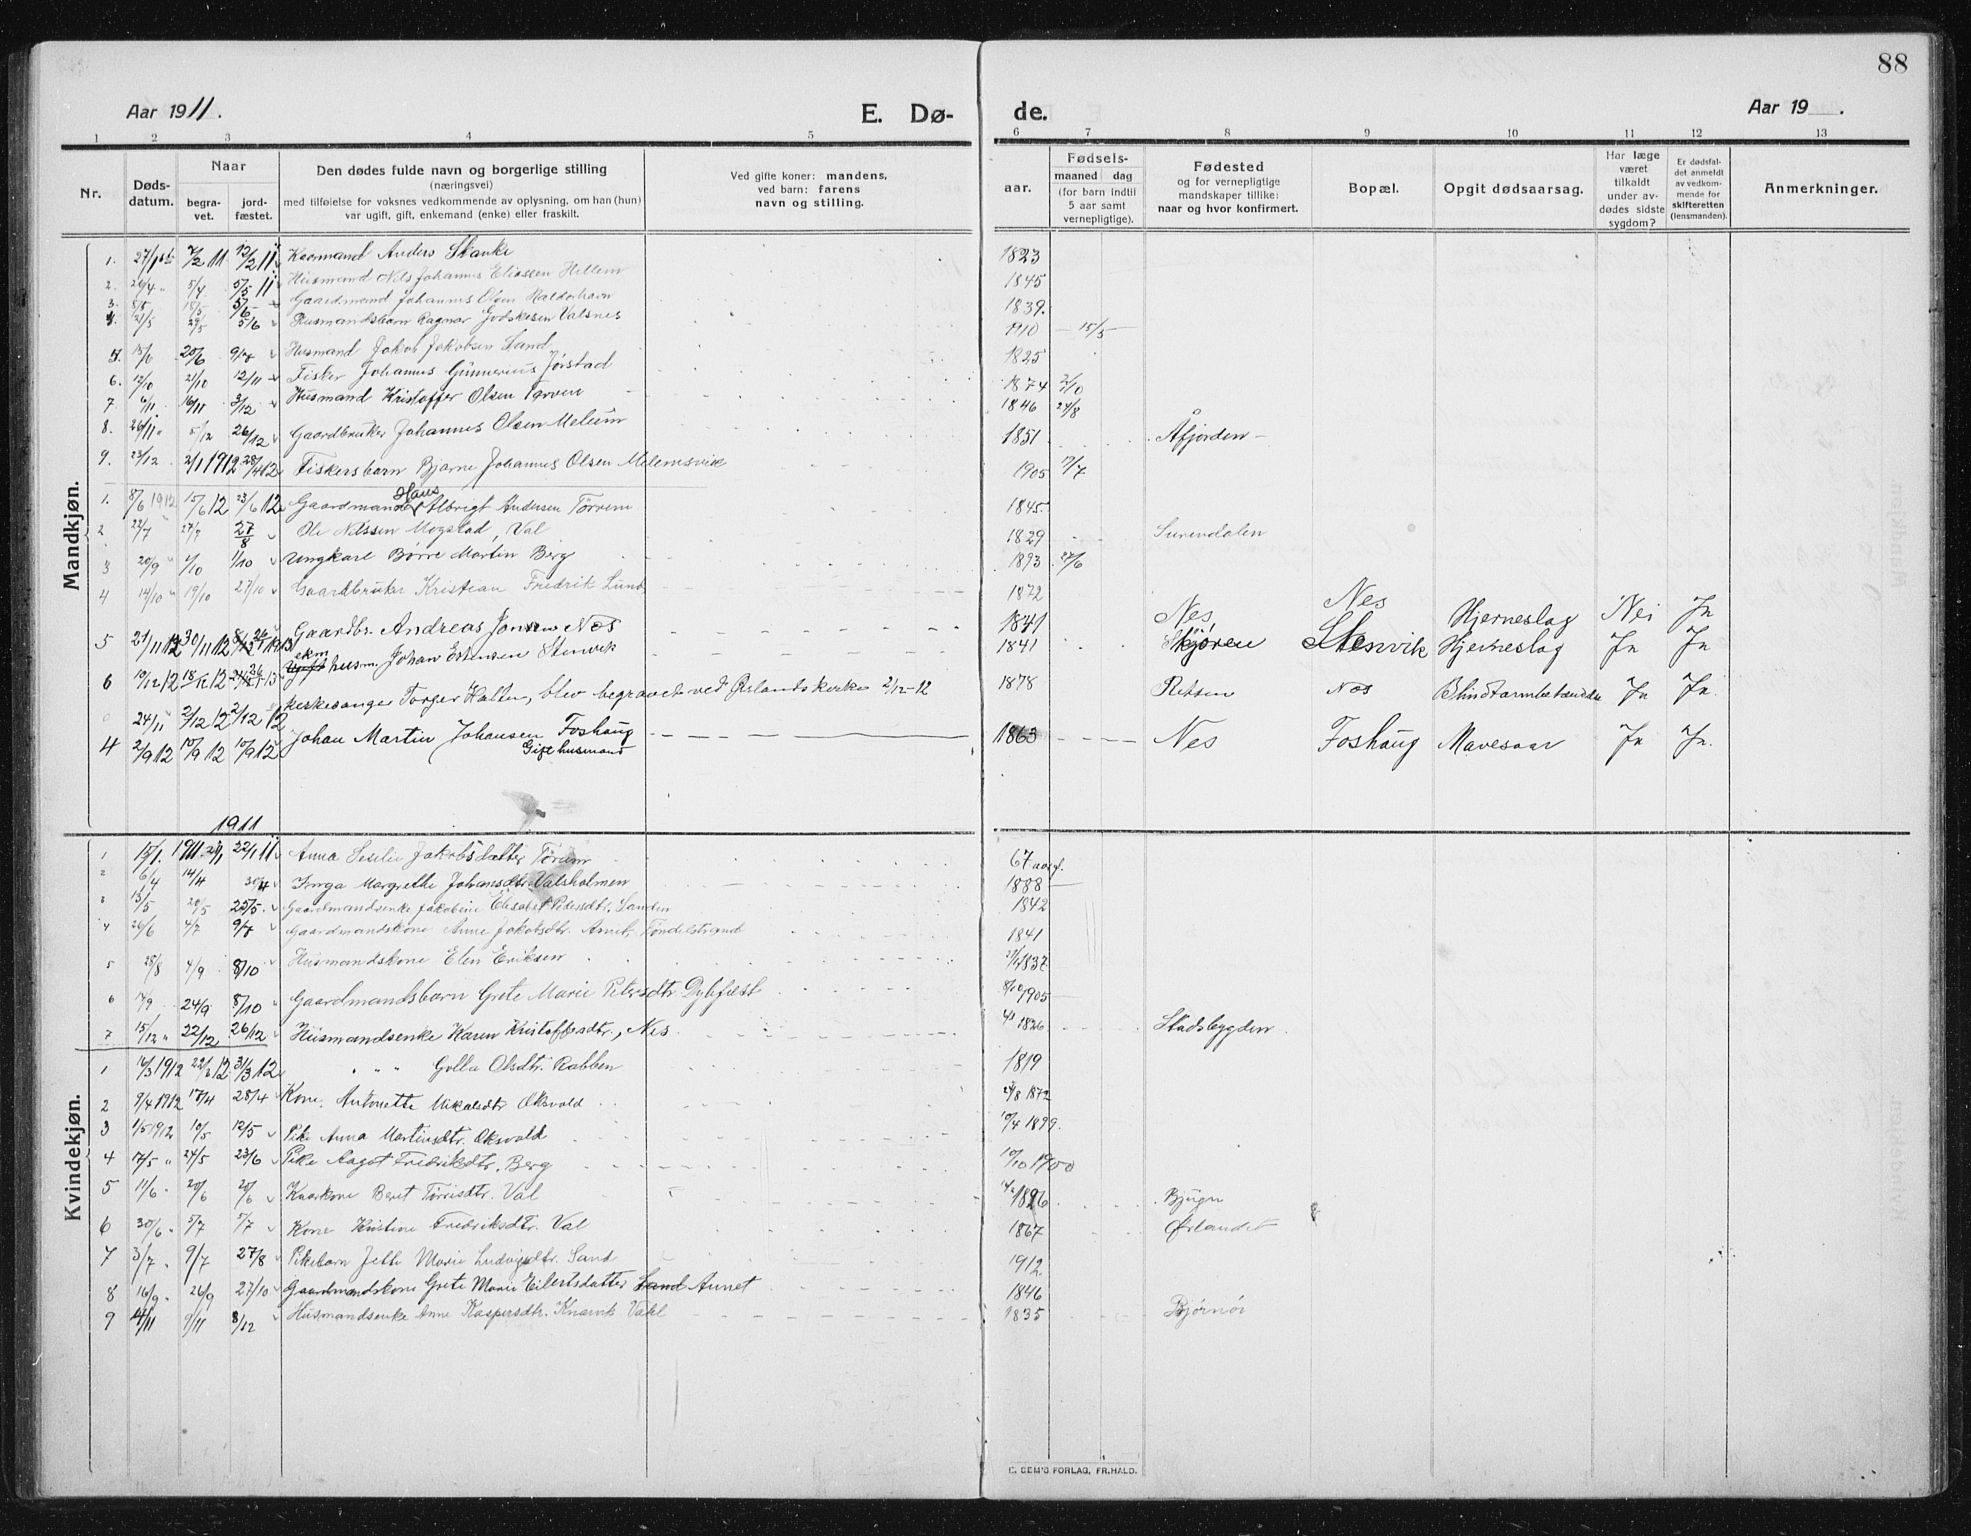 88
Aar 1911.
E. Dø-
de.
Aar 19 .
1 2 3 4 5 6 7 8 9 10 11 12 13
Nr.
Døds-
datum.
Naar
begra-
vet.
jord-
fæstet.
Den dødes fulde navn og borgerlige stilling
(næringsvei)
med tilføielse for voksnes vedkommende av oplysning, om han (hun)
var ugift, gift, enkemand (enke) eller fraskilt.
Ved gifte koner: mandens,
ved barn: farens
navn og stilling.
aar.
Fødsels-
maaned dag
(for barn indtil
5 aar samt
vernepligtige).
Fødested
og for vernepligtige
mandskaper tillike:
naar og hvor konfirmert.
Bopæl.
Opgit dødsaarsag.
Har læge
været
tilkaldt
under av-
dødes sidste
sygdom?
Er dødsfal-
det anmeldt
av vedkom-
mende for
skifteretten
(lensmanden).
Anmerkninger.
Mandkjøn.
1. 7/2 11 12/2 11 Kaarmand Anders Stanke 1823
2. 26/4 " 5/4 5/5 11 Husmand Nils Johannes Eliassen Hellem 1845
3. 5/5 15/5 5/6 Gaardmand Johannes Olsen 1839.
4. 21/5 29/5 5/6 Husmandsbarn Ragnar Godskesen Valsnes 1910 15/5
5. 15/6 20/6 9/7 Husmand Jakob Jakobsen Sand 1825
6. 12/10 21/10 12/11 Fisker Johannes Gunnerius Jørstad 1874 2/10
7 6/11 16/11 3/12 Husmand Kristoffer Olsen Tørvem 1846 24/8
8. 26/11 " 5/12 26/12 Gaardbruker Johannes Olsen Melum 1851 Åfjorden
9. 23/12 2/1 1912 28/4 12 Fiskersbarn Bjarne Johannes Olsen Melemsvik 1905 17/7
1. 8/6 1912 15/6 12 23/6 12 Gaardmand Hans Albrigt Andersen Tørvem 1845
2 22/7 " 27/7 27/8 Ole Nilssen Mogstad, Val 1829 Surendalen
3 20/9 " 1/10 1/10 Ungkarl Børre Martin Berg 1893 27/6
4 14/10 " 19/10 27/10 Gaardbruker Kristian Fredrik Lund 1872
5 21/11 12 30/11 12 Gaardbr. Andreas Jonsen Nes 1841 Nes Nes Hjerneslag Nei Ja
6 10/12 12 18/12 12 Ugift ekm husm. Johan Estensen Stenvik 1841 Skjøren Stenvik Hjerneslag Ja Ja
24/11 2/12 12 2/12 12 kirkesanger Torger Halten, blev begravet ved Ørlands kirke 2/12-12 1878 Rissen Nes Blindtarmbetændelse Ja Ja.
4 2/9 12 10/9 12 10/9 12 Johan Martin Johansen Foshaug 1863 Nes Foshaug Mavesaar Ja Ja.
Gift husmand
1911
Kvindekjøn.
1 15/1. 1911 22/1 11 Anna Seselie Jakobsdatter Tørum 67 aar gl.
2 6/4 14/4 30/4 Inga Margrethe Johansdtr. Valsholmen 1888
3 13/5 20/5 25/5. Gaardmandsenke Jakobine Elisabet Petersdtr. Sanden 1842
4 26/6 4/7 9/7 Gaardmandskone Anne Jakobsdtr. Arnet, Tøndelstrand 1841
5 28/8 4/9 8/10 Husmandskone Elen Eriksen 1837
6 17/9 24/9 8/10 Gaardmandsbarn Grete Marie Petersdtr Dybfest 8/10 1905
7 15/12 " 22/12 26/12 Husmandsenke Karen Kristoffersdtr., Nes 1826 Stadsbygden
1 14/3 1912 22/3 12 31/3 12 " " Golla Olsdtr. Rabben 1819
2 9/4 1912 17/4 28/4 Kone. Antonette Mikalsdtr Oksvold 1872
3 1/5 1912 10/5 12/5 Pike Anna Martinsdtr. Oksvold 10/4 1899.
4 17/5 " 24/5 23/6 Pike Aagot Fredriksdtr. Berg 10/10 1900
5 11/6 20/6 20/6 Kaarkone Beret Tørrisdtr. Val 1826 Bjugn
6 30/6 " 5/7 5/7 Kone Kristine Fredriksdtr. Val 1867 Ørlandet
7 3/7 9/7 27/8 Pikebarn Jette Marie Ludvigsdtr. Sand 1912
8 16/9 26/9 27/10 Gaardmandskone Grete Marie Eilertsdatter Sand Annet 1846
9 9/11 8/12 Husmandsenke Anne Kaspersdtr. Knarvik Vahl 1835 Bjørnør
E. SEM'S FORLAG, FR.HALD.